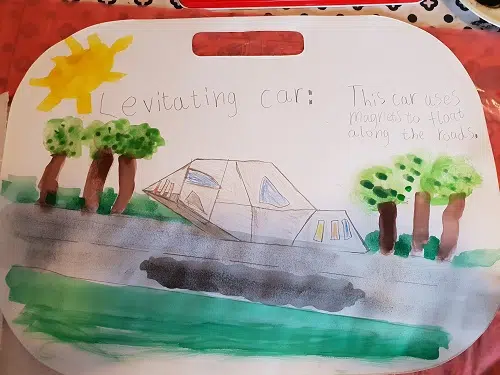 Levitating car:
This car uses
magnets to float
along the roads.